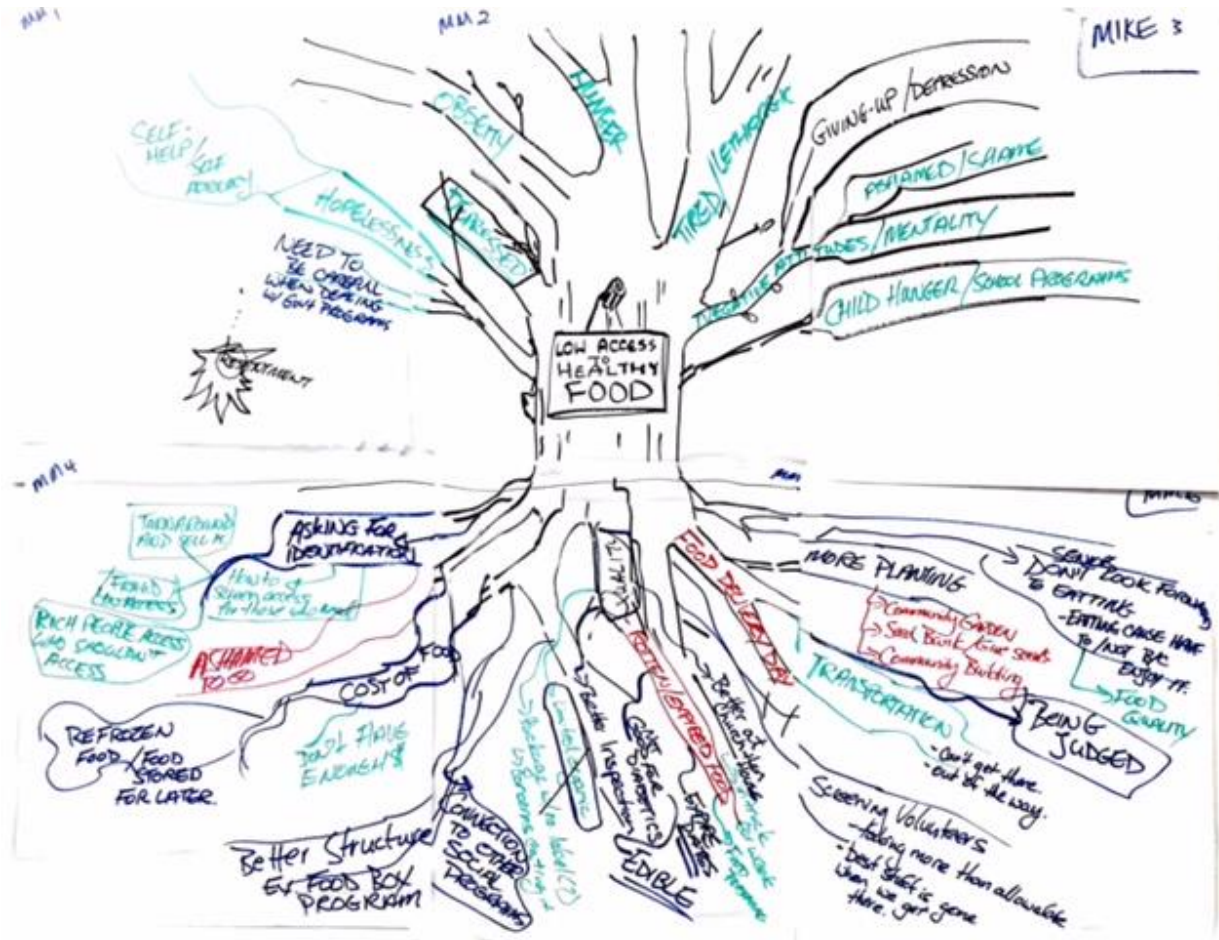 MM 1
MM 2
MIKE 3
SELF-
HELP/
SELF
HOPELESSNESS
NEED TO
BE CAREFUL
WHEN DEALING
W/ GOVT PROGRAMS
RESENTMENT
OBSEITY
DEPRESSED
HUNGER
TIRED/LETHARGIC
GIVING-UP/DEPRESSION
ASHAMED/SHAME
NEGATIVE ATTITUDES/MENTALITY
CHILD HUNGER/SCHOOL PROGRAMS
LOW ACCESS
TO
HEALTHY
FOOD
MM4
ASKING FOR
IDENTIFICATION
TURN AROUND
AND SELL IT
How to
screen access
for those who
RICH PEOPLE ACCESS
WHO SHOULDN'T
ACCESS
ASHAMED
TO GO
COST OF FOOD
DON'T HAVE
ENOUGH $
REFROZEN
FOOD/FOOD
STORED
FOR LATER.
Better Structure
FOOD BOX
PROGRAM
CONNECTION
TO OTHER
SOCIAL
PROGRAMS
Packaging w/ no label (?)
QUALITY
Better Inspection
NOT
GOOD FOR
DIABETICS
EDIBLE
ROTTEN/EXPIRED FOOD
EXPIRE
DATES
Better at
FOOD DELIVERY/DAY
MORE PLANTING
→ Community GARDEN
→ Seed Bank/Give seeds
→ Community Building
TRANSPORTATION
- can't get there.
- out of the way.
SENIORS
DON'T LOOK FORWARD
TO EATTING
- EATTING CAUSE HAVE
TO/NOT B/C
ENJOY IT.
→ FOOD
QUALITY
BEING
JUDGED
Screening Volunteers
- taking more than allowable
- best stuff is gone
when we get
there.